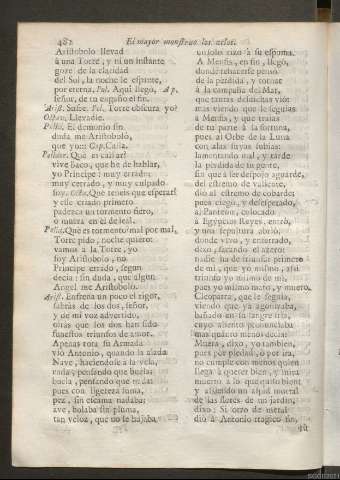 482 El mayor monstruo los zelos.
Aristobolo llevad
à una Torre, y ni un instante
goze de la claridad
del Sol, la noche le espante,
por eterna. Pol. Aqui llegò, Ap.
señor, de tu engaño el fin.
Arist. Suse. Pol. Torre obscura yo?
Octav. Llevadle.
Polid. El demonio
duda me Aristobolò,
que yo: Cap. Calla.
Polidor. Que es callar?
vive Baco, que he de hablar,
yo Principe? muy errado:
muy cerrado, y muy culpado
soy. Octav. Què teneis que esperar?
y esse criado primero
padezca un tormento fiero,
ò muera en èl de leal.
Polid. Què es tormento? mal por mal,
Torre pido; noche quiero:
vamos à la Torre, yo
soy Aristobolo, no
Principe errado, segun
decia: sin duda, que algun
Angel me Aristobolò.
Arist. Enfrena un poco el rigor,
sabràs de los dos, señor,
y de mi voz advertido,
otras que los dos han sido
funestos triunfos de amor.
Apenas rota su Armada
viò Antonio, quando la alada
Nave, haciendose à la vela,
nada, pensando que buela:
buela, pensando que nada:
pues con ligereza suma,
pez, sin escama nadaba;
ave, bolaba sin pluma,
tan veloz, que no le bajaba
un solo rizo à su espuma.
A Menfis, en fin, llegò,
donde rehacerse pensò
de la pèrdida, y tornar
à la campaña del Mar,
que tantas desdichas viò:
mas viendo que le seguias
à Menfis, y que traias
de tu parte à la fortuna,
pues al Orbe de la Luna
con alas suyas subias:
lamentando mal, y tarde
la pèrdida de tu gente,
sin que à ser despojo aguarde,
del estremo de valiente,
diò al estremo de cobarde;
pues ciego, y desesperado,
al Panteon, colocado
à Egypcios Reyes, entrò,
y una sepultura abriò,
donde vivo, y enterrado,
dixo, sacando el azero:
nadie ha de triunfar primero
de mì, que yo mismo, assi
triunfo yo mismo de mì,
pues yo mismo mato, y muero.
Cleopatra, que le seguia,
viendo que ya agonizaba,
bañado en su sangre fria,
cuyo aliento pronunciaba
mas quanto menos decia:
Muera, dixo, yo tambien,
pues por piedad, ò por ira,
no cumple con menos quien
llega à querer bien, y mira
muerto à lo que quiso bien:
y asiendo un aspid mortal
de las flores de un jardin,
dixo: Si otro de metal
diò à Antonio tragico fin,
tù